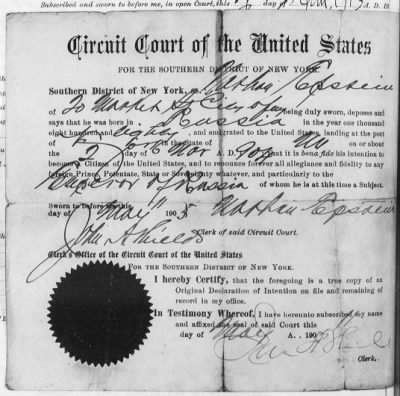 Subscribed and sworn to before me, in open Court, this 26 day of A. D.
Circuit Court of the United States
FOR THE SOUTHERN DISTRICT OF NEW YORK.
Southern District of New York, ss. Nathan Epstein
of 30 Market St City of being duly sworn, deposes and
says that he was born in Russia in the year one thousand
eight hundred and eighty, and emigrated to the United States, landing at the port
of in the State of NY on or about
the 2 day of Nov A. D. 190 that it is bona fide his intention to
become a Citizen of the United States, and to renounce forever all allegiance and fidelity to any
foreign Prince, Potentate, State or Sovereignty whatever, and particularly to the
Emperor of Russia of whom he is at this time a Subject.
Sworn to before me this
day of May 1905 Nathan Epstein
John A Shields
Clerk of said Circuit Court.
Clerk's Office of the Circuit Court of the United States
FOR THE SOUTHERN DISTRICT OF NEW YORK.
I hereby Certify, that the foregoing is a true copy of an
Original Declaration of Intention on file and remaining of
record in my office.
In Testimony Whereof, I have hereunto subscribed my name
and affixed the seal of said Court this
day of May A. 190
John A Shields
Clerk.